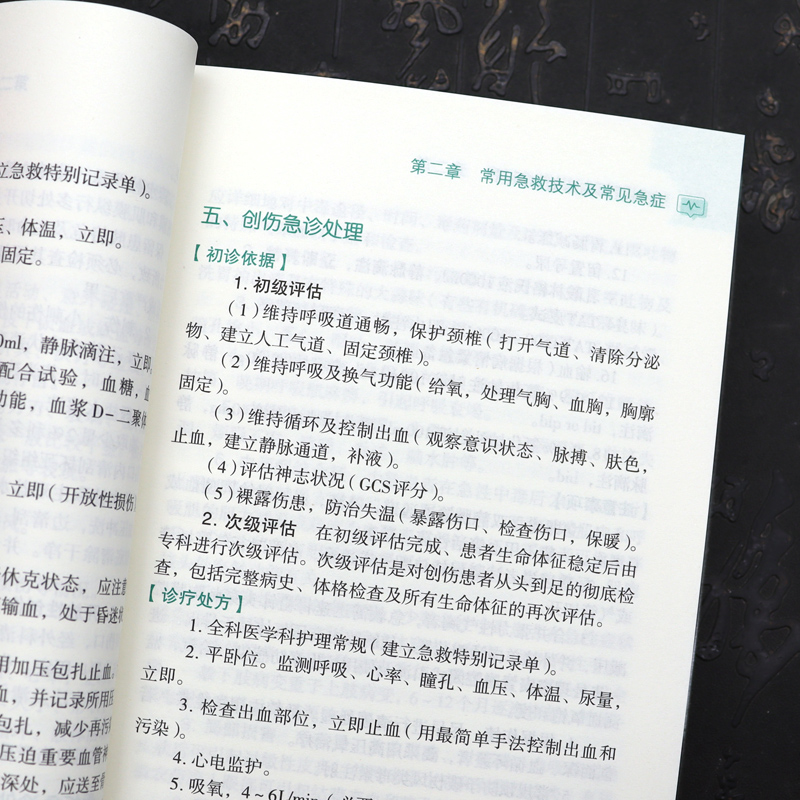 立急救特别记录单)。
体温,立即。
固定。
0ml,静脉滴注,立即
配合试验,血糖,血
功能,血浆D-二聚体
立即(开放性损伤
休克状态,应注意
输血,处于昏迷状
用加压包扎止血。
血,并记录所用压
包扎,减少再污染
压迫重要血管神
深处,应送至
第二章 常用急救技术及常见急症
五、创伤急诊处理
【初诊依据】
1. 初级评估
(1)维持呼吸道通畅,保护颈椎(打开气道、清除分泌
物、建立人工气道、固定颈椎)。
(2)维持呼吸及换气功能(给氧,处理气胸、血胸,胸廓
固定)。
(3)维持循环及控制出血(观察意识状态、脉搏、肤色,
止血,建立静脉通道,补液)。
(4)评估神志状况(GCS评分)。
(5)裸露伤患,防治失温(暴露伤口,检查伤口,保暖)。
2. 次级评估 在初级评估完成、患者生命体征稳定后由
专科进行次级评估。次级评估是对创伤患者从头到足的彻底检
查,包括完整病史、体格检查及所有生命体征的再次评估。
【诊疗处方】
1. 全科医学科护理常规(建立急救特别记录单)。
2. 平卧位。监测呼吸、心率、瞳孔、血压、体温、尿量,
立即。
3. 检查出血部位,立即止血(用最简单手法控制出血和
污染)。
4. 心电监护。
5. 吸氧,4~6L/min